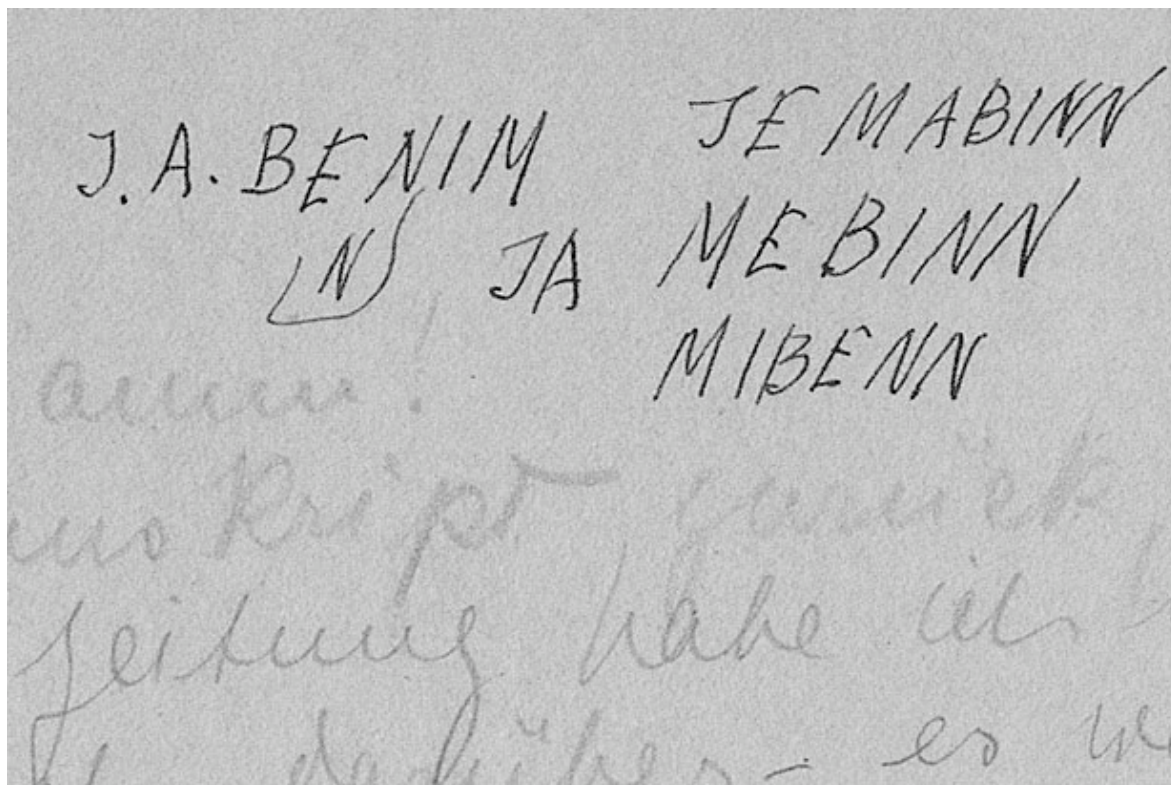 J.A. BENIM JE MABINN
N JA MEBINN
MIBENN
kript zurück
Zeitung habe ich
darüber - es